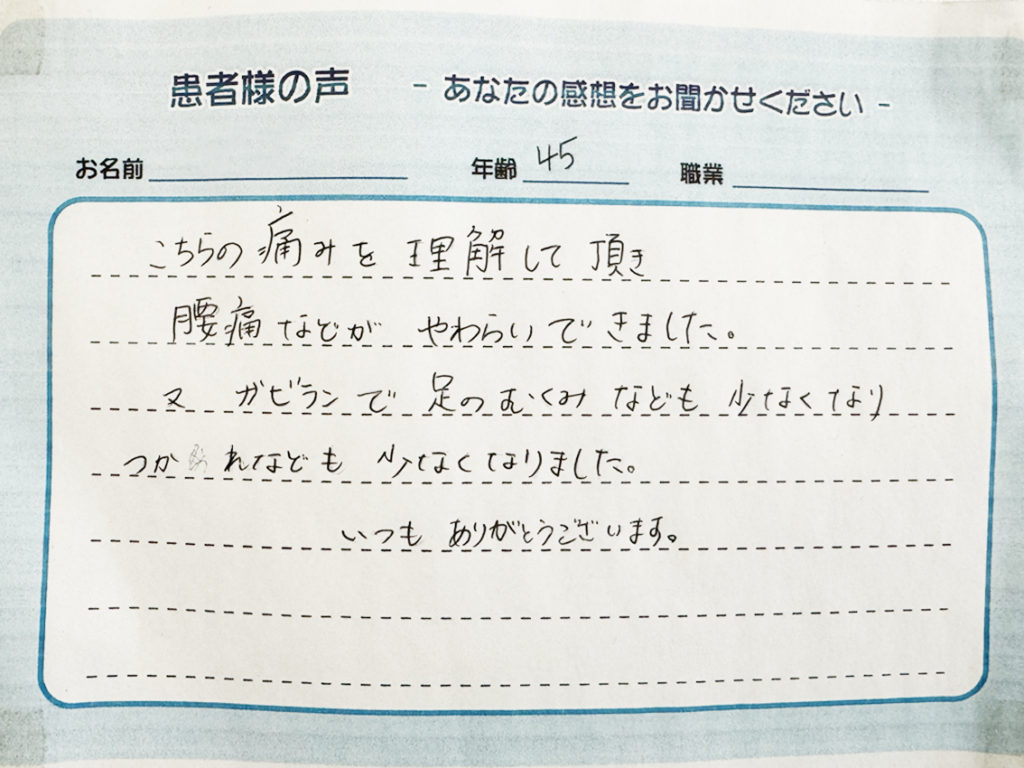 患者様の声 - あなたの感想をお聞かせください -
お名前 年齢 45 職業
こちらの痛みを理解して頂き
腰痛などが やわらいできました。
又 ガビランで 足のむくみなども 少なくなり
つかれなども 少なくなりました。
いつも ありがとうございます。